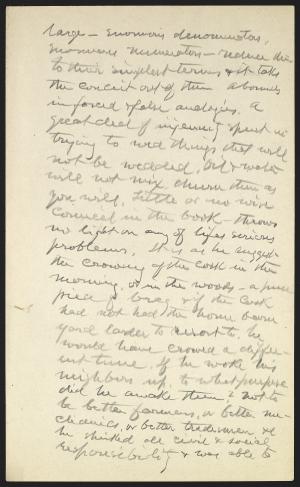 large – enormous denominators,
enormous numerators – reduce them
to their simplest terms & it takes
the conceit out of them. abounds
in forced & false analogies. A
great deal of ingenuity spent in
trying to wed things that will
not be wedded. Oil & water
will not mix, churn them as
you will. Little or no wise
counsel in the book – throws
no light on any of life's serious
problems. It is as he suggests
the crowing of the cock in the
morning, or in the woods – a pure
piece of brag & if the cock
had not had the home barn
yard larder to resort to, he
would have crowed a differ-
ent tune. If he woke his
neighbors up, to what purpose
did he awake them? not to
be better farmers, or better me-
chanics, or better tradesmen &c
he shirked all civil & social
responsibility & was able to